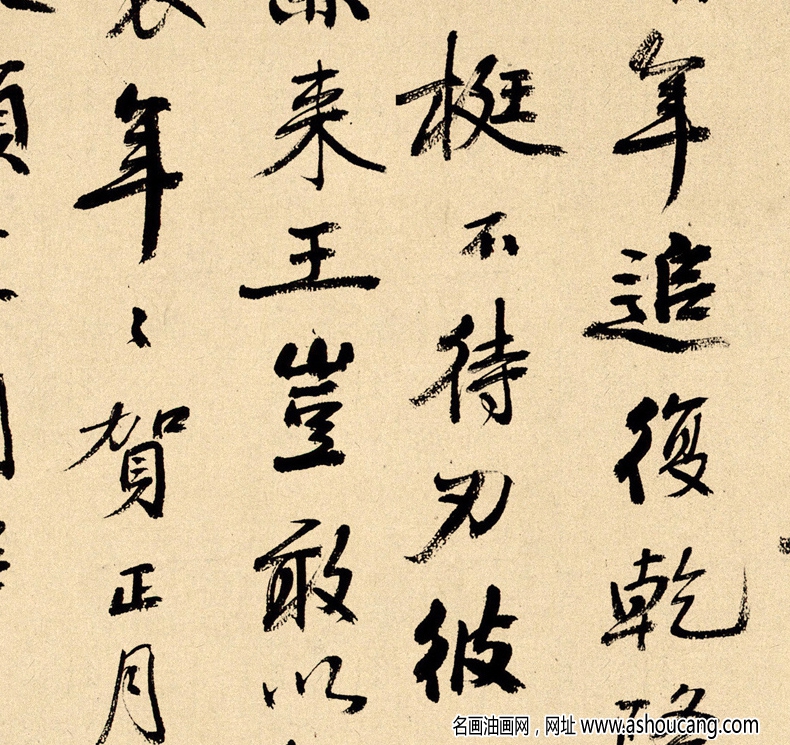 年追復乾隆
梃不待刃彼
來王豈敢以
年々賀正月
名画油画网，网址 www.ashoucang.com